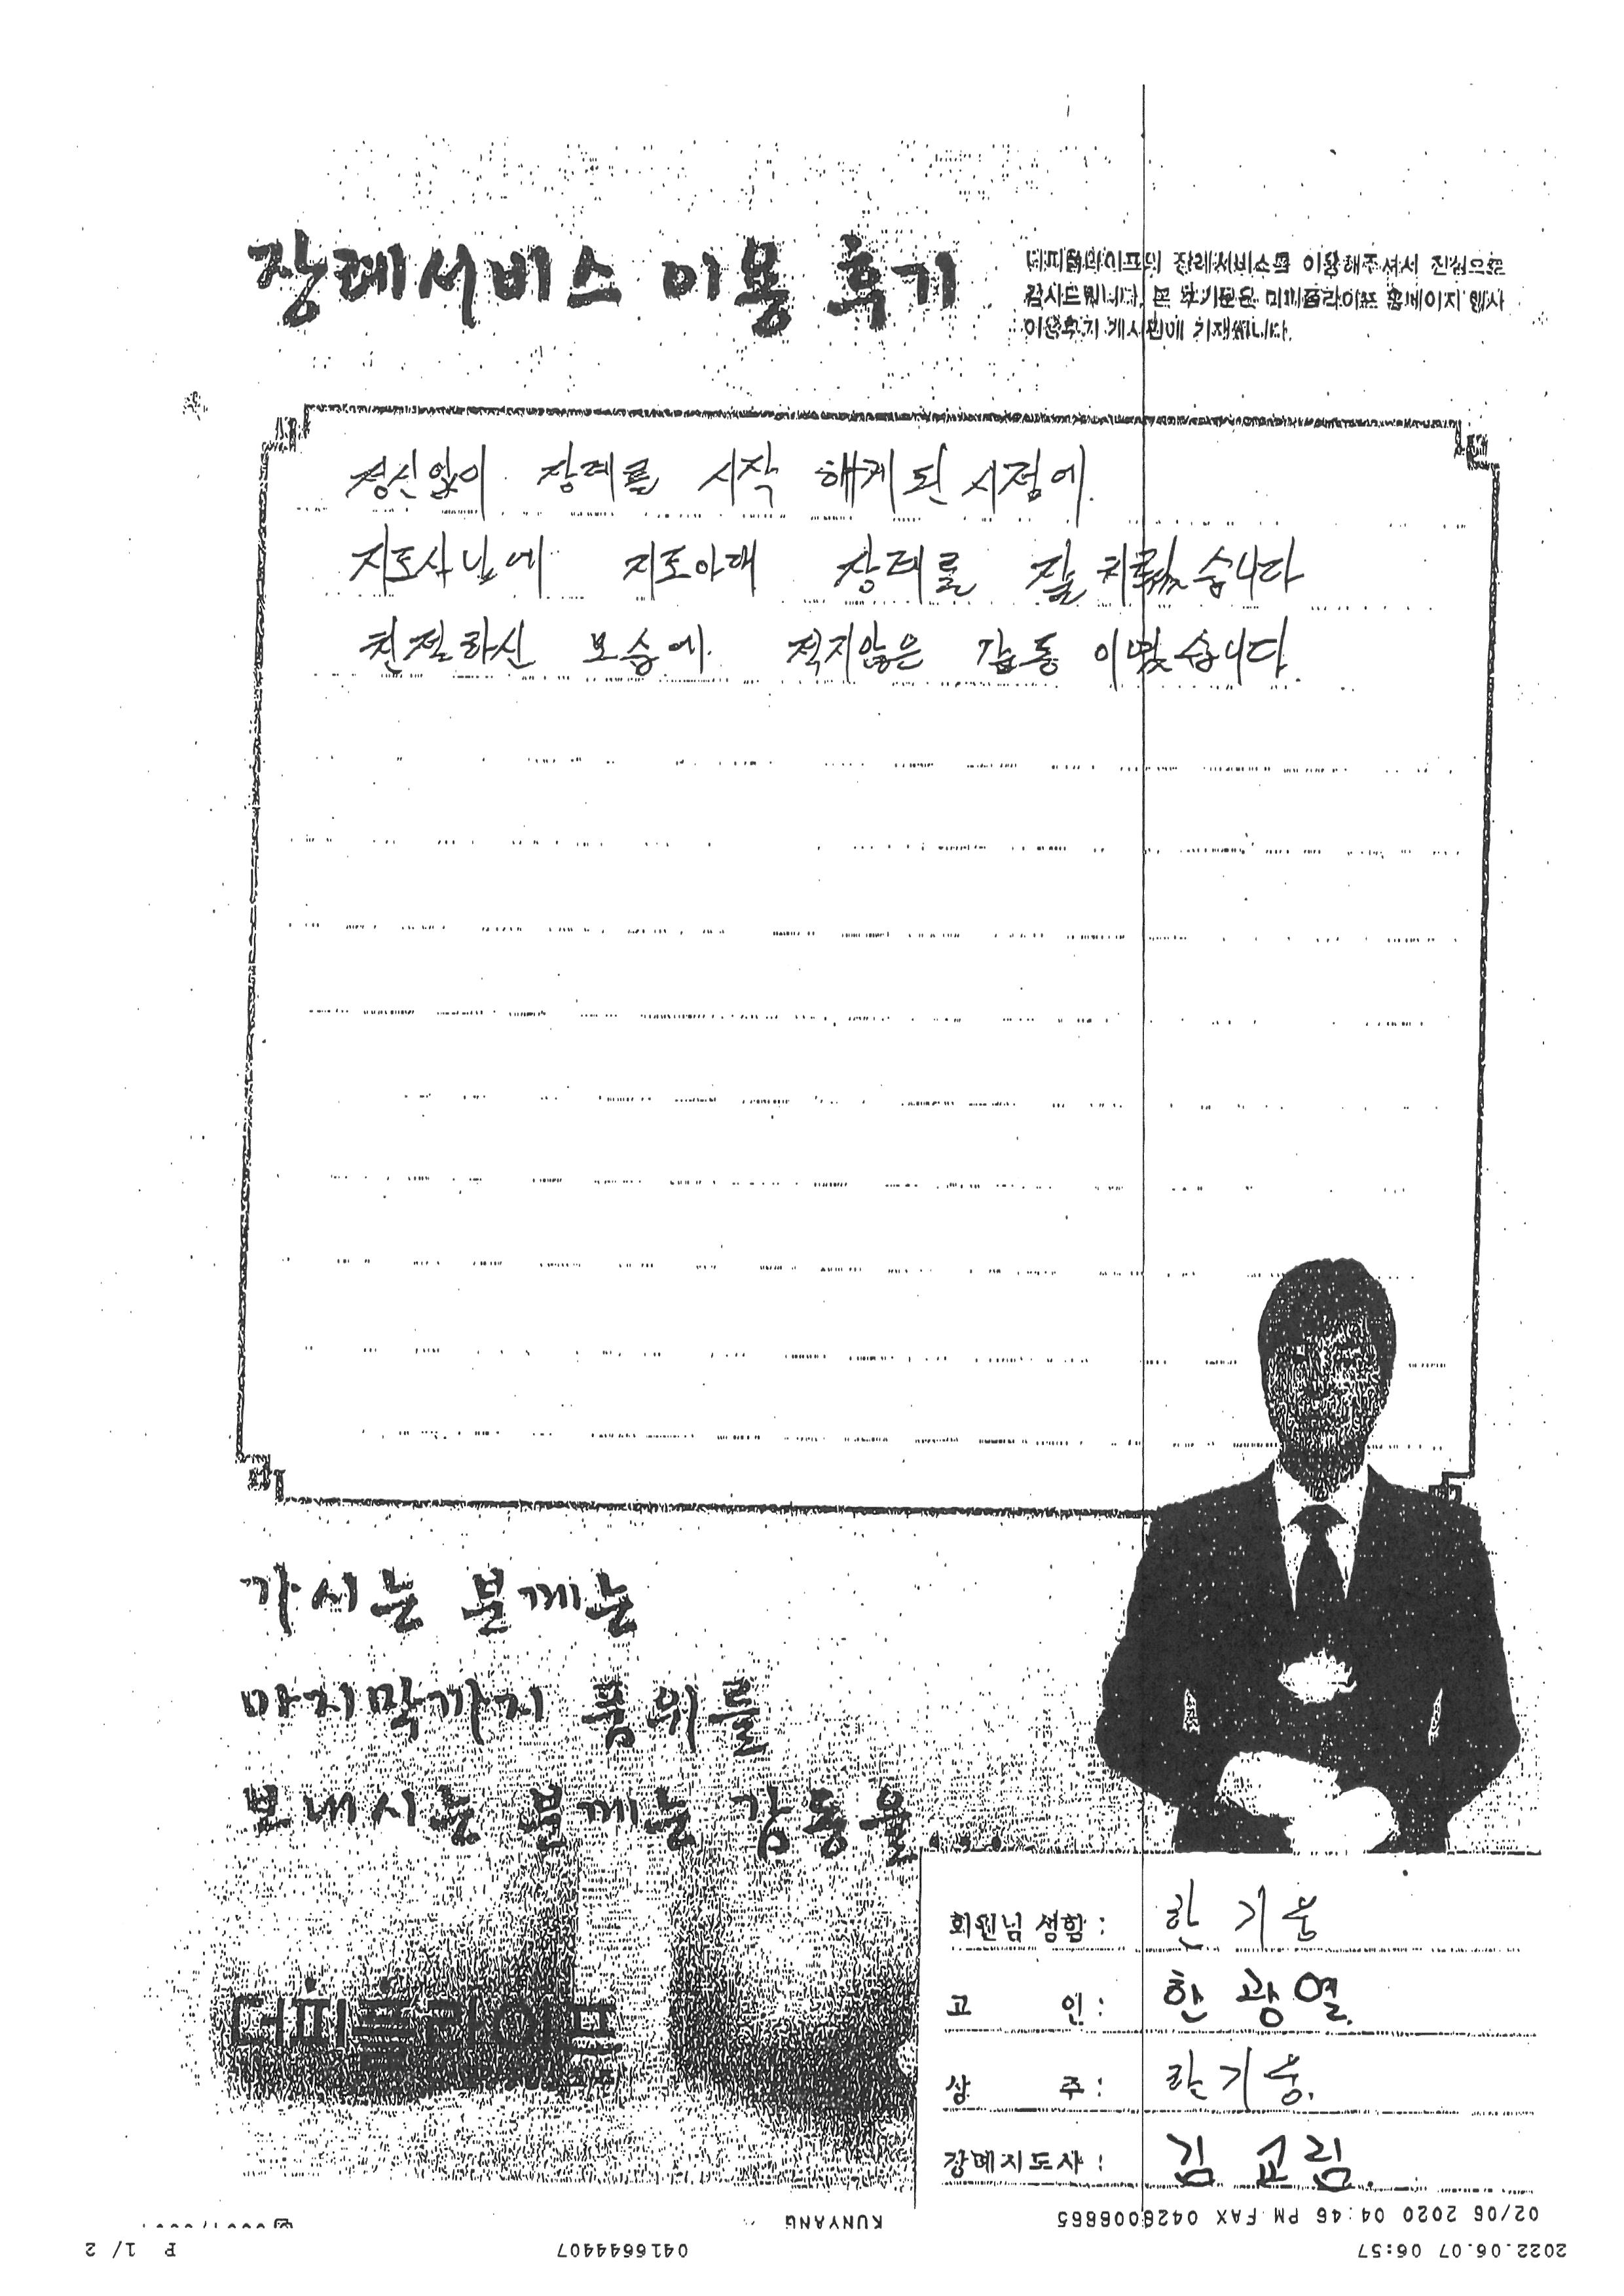 장례서비스 이용 후기
더피플라이프의 장례서비스를 이용해주셔서 진심으로
감사드립니다. 본 후기문은 더피플라이프 홈페이지 행사
이용후기 게시판에 기재됩니다.
정신없이 장례를 시작 해게된 시점에.
지도사님에 지도아래 장례를 잘 치뤘습니다
친절하신 모습에. 적지않은 감동 이였습니다.
가시는 분께는
마지막까지 품위를
보내시는 분께는 감동을...
더피플라이프
회원님 성함 : 한 기웅
고 인 : 한 광열.
상 주 : 한기웅.
장례지도사 : 김 교림.
02/06 2020 04:46 PM FAX 0426008665 KUNYANG
2022.06.07 06:57 0416644407 P 1/ 2